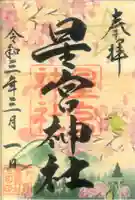 奉拝
星宮神社
令和三年三月一日